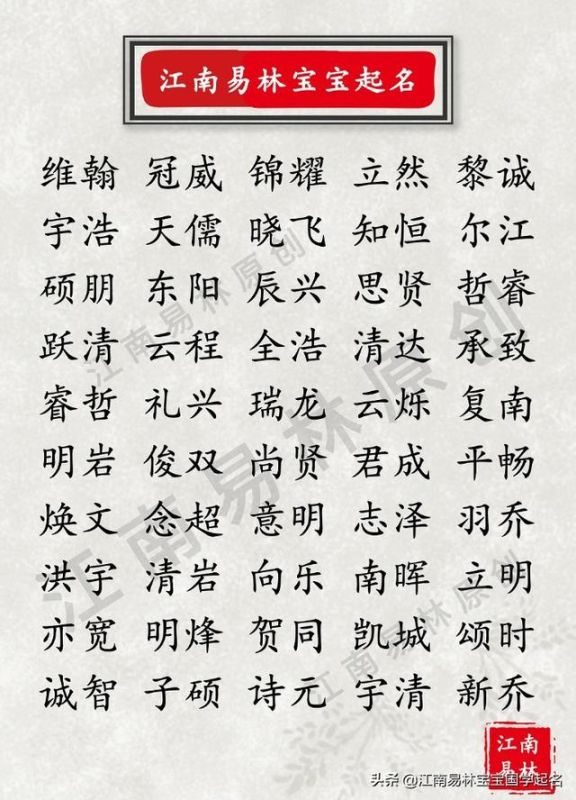 江南易林宝宝起名
维翰 冠威 锦耀 立然 黎诚
宇浩 天儒 晓飞 知恒 尔江
硕朋 东阳 辰兴 思贤 哲睿
跃清 云程 全浩 清达 承致
睿哲 礼兴 瑞龙 云烁 复南
明岩 俊双 尚贤 君成 平畅
焕文 念超 意明 志泽 羽乔
洪宇 清岩 向乐 南晖 立明
亦宽 明烽 贺同 凯城 颂时
诚智 子硕 诗元 宇清 新乔
江南易林原创
江南易林原创
江南易林原创
江南
易林
头条 @江南易林宝宝国学起名